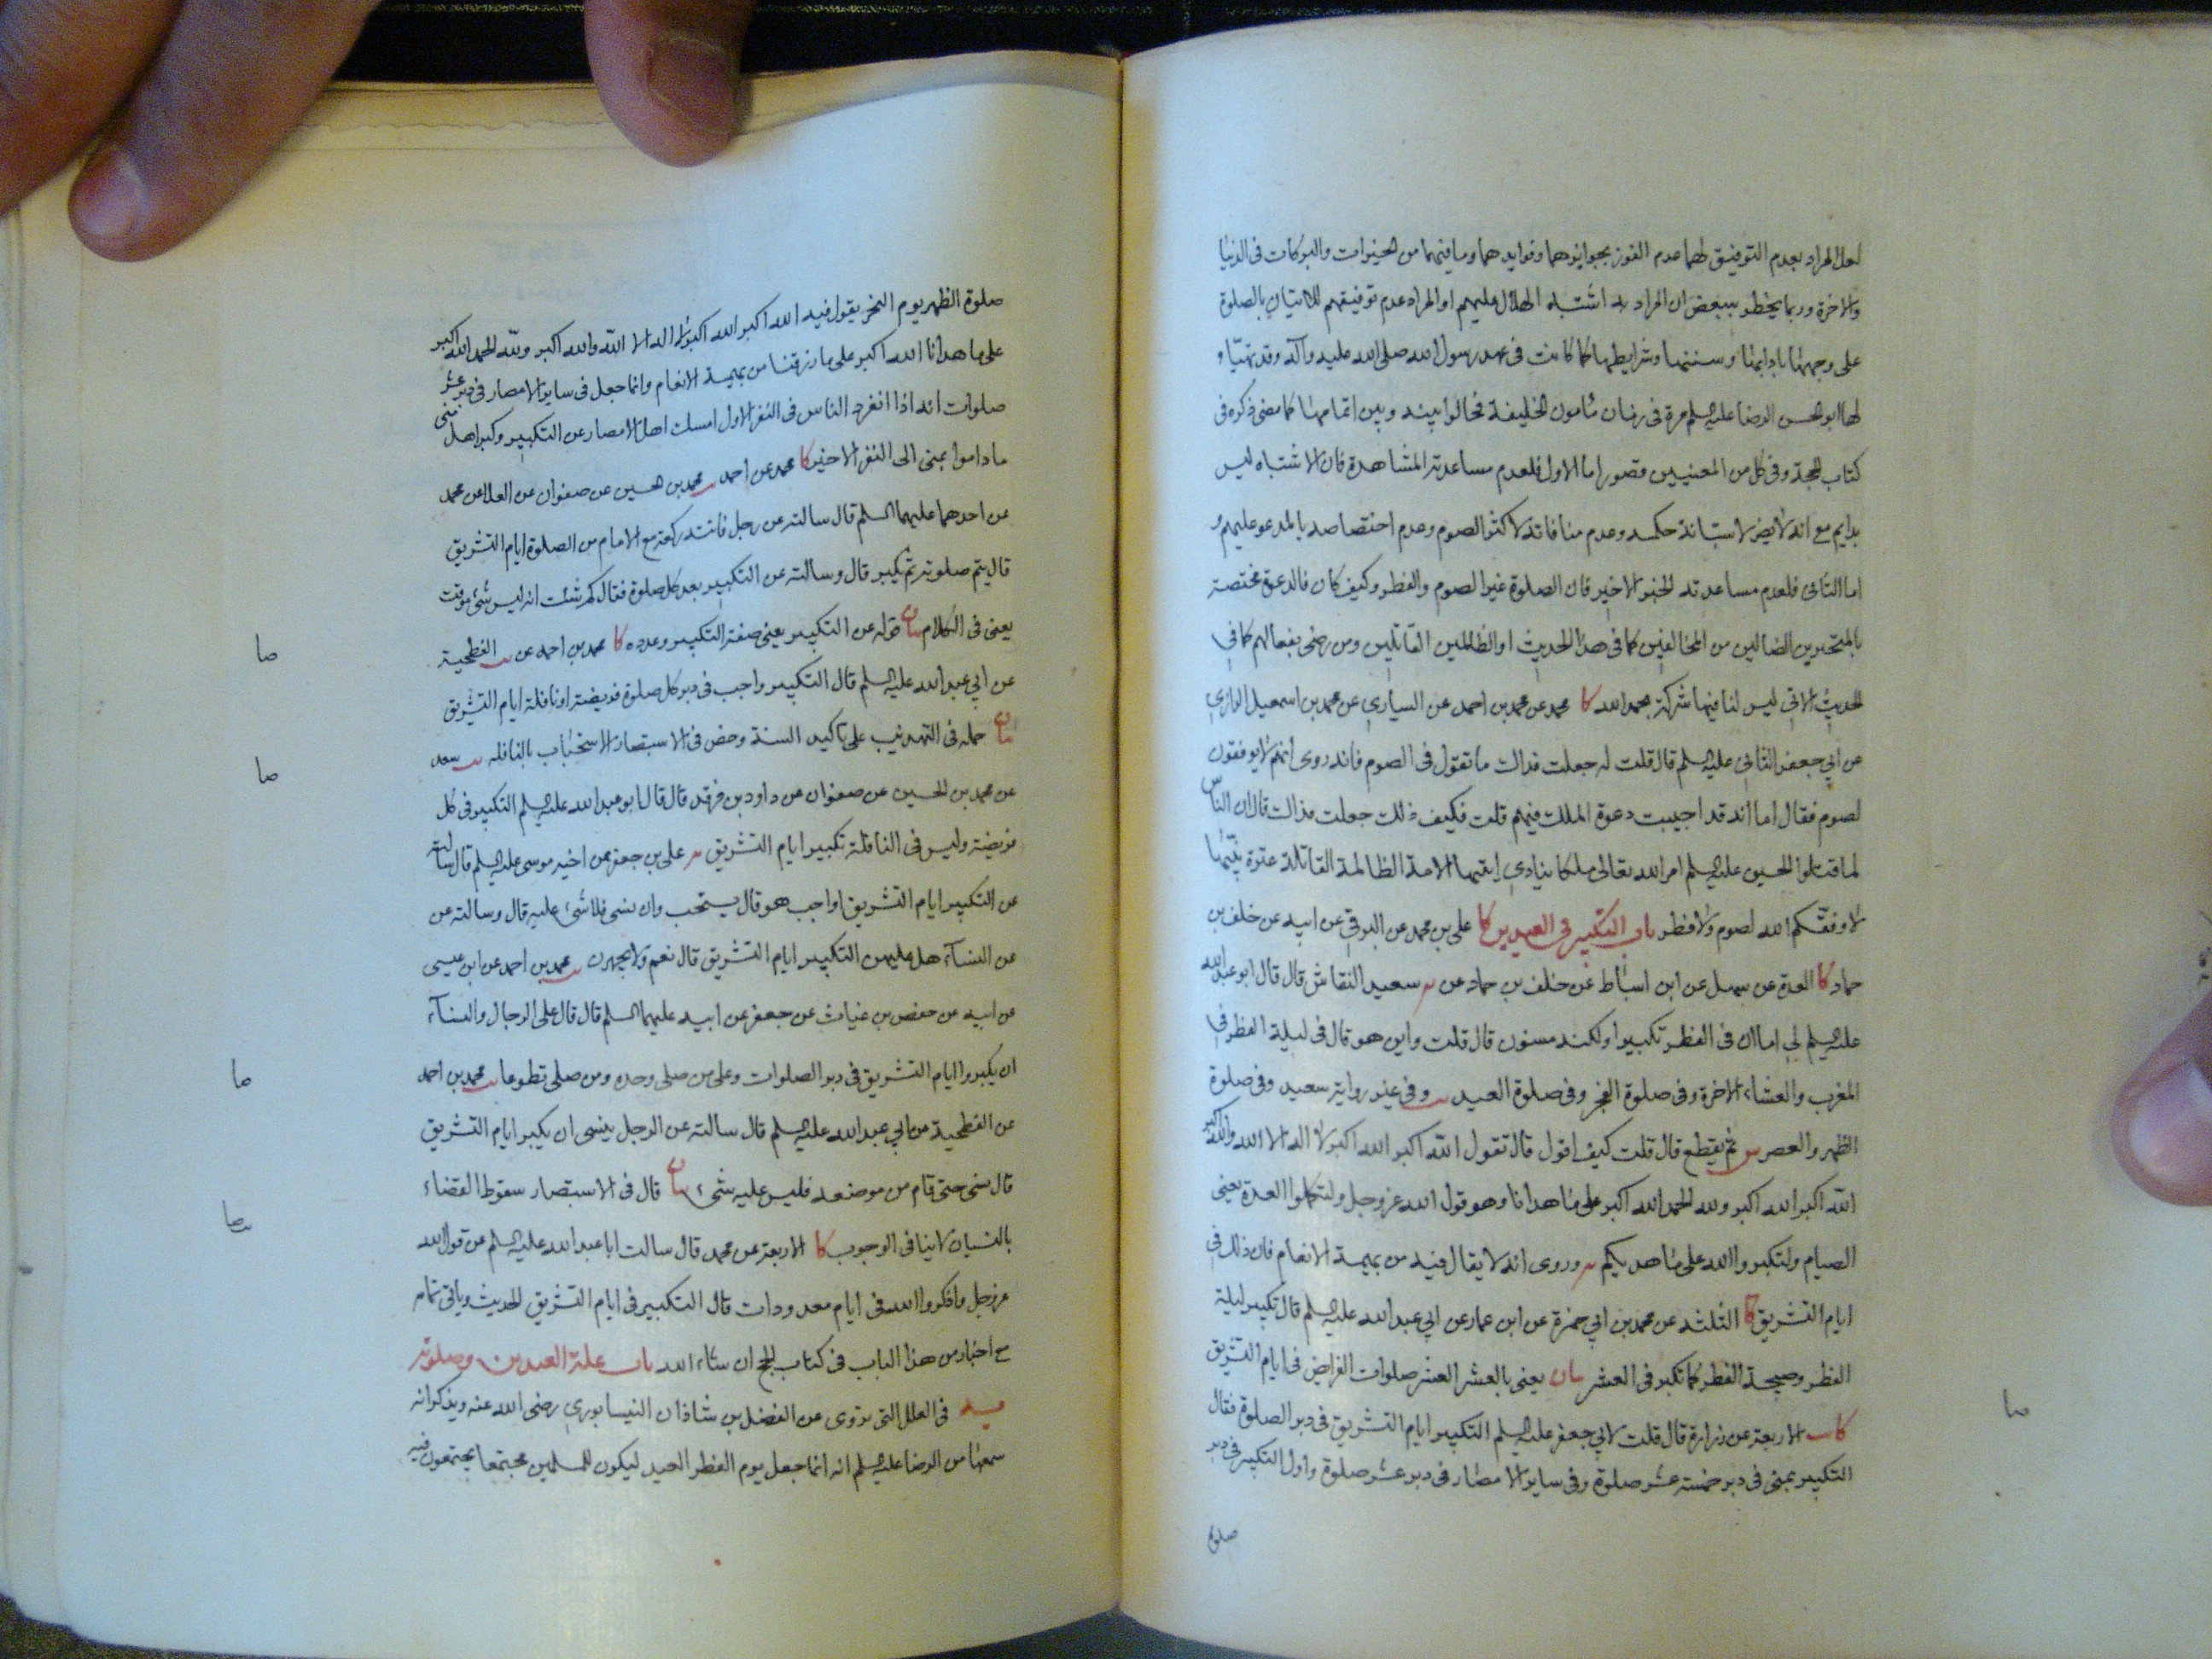 لعل المراد بعدم التوفيق لهما عدم الفوز بجوايزهما وفوايدهما وما فيهما من الخيرات والبركات فى الدنيا
والاخرة وربما يخطر ببعض ان المراد به اشتباه الهلال عليهم او المراد عدم توفيقهم للاتيان بالصلوة
على وجهها بادابها وسننها وشرايطها كما كانت فى عهد رسول الله صلى الله عليه وآله وقد تهيّا و
لها ابو الحسن الرضا عليه السلم مرة فى زمان مأمون الخليفة فحالوا بينه وبين اتمامها كما مضى ذكره فى
كتاب الحجة وفى كل من المعنيين قصور اما الاول فلعدم مساعدة المشاهدة فان الاشتباه ليس
بدايم مع انه لا يضر لاستبانة حكمه وعدم منافاته لاكثر الصوم وعدم اختصاصه بالمدعو عليهم و
اما الثانى فلعدم مساعدته الخبر الاخير فان الصلوة غير الصوم والفطر وكيف كان فالدعوة مختصة
بالمتحيرين الضالين من المخالفين كما فى هذا الحديث او الظالمين القاتلين ومن رضى بفعالهم كما فى
الحديث الاتى ليس لنا فيها شركة بحمد الله كا محمد عن محمد بن احمد عن السيارى عن محمد بن اسمعيل الرازى
عن ابى جعفر الثانى عليه السلم قال قلت له جعلت فداك ما تقول فى الصوم فانه روى انهم لا يوفقون
لصوم فقال اما انه قد اجيبت دعوة الملك فيهم قلت فكيف ذلك جعلت فداك قال ان الناس
لما قتلوا الحسين عليه السلم امر الله تعالى ملكا ينادى ايتها الامة الظالمة القاتلة عترة نبيّها
لا وفقكم الله لصوم ولا فطر باب التكبير فى العيدين كا على بن محمد عن البرقى عن ابيه عن خلف بن
حماد كا العدة عن سهل عن ابن اسباط عن خلف بن حماد عن سعيد النقاش قال قال ابو عبد الله
عليه السلم لى اما ان فى الفطر تكبيرا ولكنه مسنون قال قلت واين هو قال فى ليلة الفطر فى
المغرب والعشاء الاخرة وفى صلوة الفجر وفى صلوة العيد وفى غير رواية سعيد وفى صلوة
الظهر والعصر ثم يقطع قال قلت كيف اقول قال تقول الله اكبر الله اكبر لا اله الا الله والله اكبر
الله اكبر الله اكبر ولله الحمد الله اكبر على ما هدانا وهو قول الله عز وجل ولتكملوا العدة يعنى
الصيام ولتكبروا الله على ما هديكم وروى انه لا يقال فيه من بهيمة الانعام فان ذلك فى
ايام التشريق كا الثلثة عن محمد بن ابى حمزة عن ابن عمار عن ابى عبد الله عليه السلم قال تكبر ليلة
الفطر وصبيحة الفطر كما تكبر فى العشر بيان يعنى بالعشر العشر صلوات الفرايض فى ايام التشريق
كا الاربعة عن زرارة قال قلت لابى جعفر عليه السلم التكبير ايام التشريق فى دبر الصلوة فقال
التكبير بمنى فى دبر خمسة عشر صلوة وفى ساير الامصار فى دبر عشر صلوة واول التكبير فى دبر
صلوة
صلوة الظهر يوم النحر يقول فيه الله اكبر الله اكبر لا اله الا الله والله اكبر ولله الحمد الله اكبر
على ما هدانا الله اكبر على ما رزقنا من بهيمة الانعام وانما جعل فى ساير الامصار فى دبر عشر
صلوات انه اذا انفرد الناس فى النفر الاول امسك اهل الامصار عن التكبير وكبر اهل منى
ما داموا بمنى الى النفر الاخير كا محمد عن احمد محمد بن الحسين عن صفوان عن العلا عن محمد
عن احدهما عليهما السلم قال سالته عن رجل فاتته ركعة مع الامام من الصلوة ايام التشريق
قال يتم صلوته ثم يكبر قال وسالته عن التكبير بعد كل صلوة فقال كم شئت انه ليس شئ موقت
يعنى فى الكلام بيان قوله عن التكبير يعنى صفة التكبير وعدده كا محمد بن احمد عن الفطحية
عن ابى عبد الله عليه السلم قال التكبير واجب فى دبر كل صلوة فريضة او نافلة ايام التشريق
بيان حمله فى التهذيب على تاكيد السنة وخص فى الاستبصار الاستحباب بالنافلة سعد
عن محمد بن الحسين عن صفوان عن داود بن فرقد قال قال ابو عبد الله عليه السلم التكبير فى كل
فريضة وليس فى النافلة تكبير ايام التشريق على بن جعفر عن اخيه موسى عليه السلم قال سالته
عن التكبير ايام التشريق اواجب هو قال يستحب وان نسى فلا شئ عليه قال وسالته عن
عن النساء هل عليهن التكبير ايام التشريق قال نعم ولا يجهرن محمد بن احمد عن ابن عيسى
عن ابيه عن حفص بن غياث عن جعفر عن ابيه عليهما السلم قال قال على الرجال والنساء
ان يكبروا ايام التشريق فى دبر الصلوات وعلى من صلى وحده ومن صلى تطوعا محمد بن احمد
عن الفطحية عن ابى عبد الله عليه السلم قال سالته عن الرجل ينسى ان يكبر ايام التشريق
قال ان نسى حتى قام من موضعه فليس عليه شئ بيان قال فى الاستبصار سقوط القضاء
بالنسيان لا ينافى الوجوب كا الاربعة عن محمد قال سالت ابا عبد الله عليه السلم عن قول الله
عز وجل واذكروا الله فى ايام معدودات قال التكبير فى ايام التشريق الحديث وياتى تمامه
مع اخبار من هذا الباب فى كتاب الحج ان شاء الله باب علة العيدين وصلوته
يه فى العلل التى تروى عن الفضل بن شاذان النيسابورى رضى الله عنه ويذكر انه
سمعها من الرضا عليه السلم انه انما جعل يوم الفطر العيد ليكون للمسلمين مجتمعا يجتمعون فيه
صا
صا
صا
صا